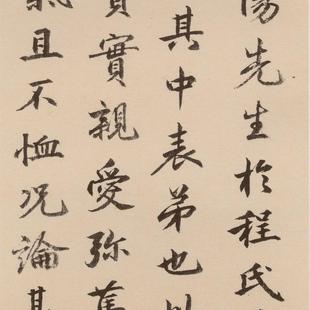 先生於程氏
其中表弟也
實親愛弥篤
且不恤况論其